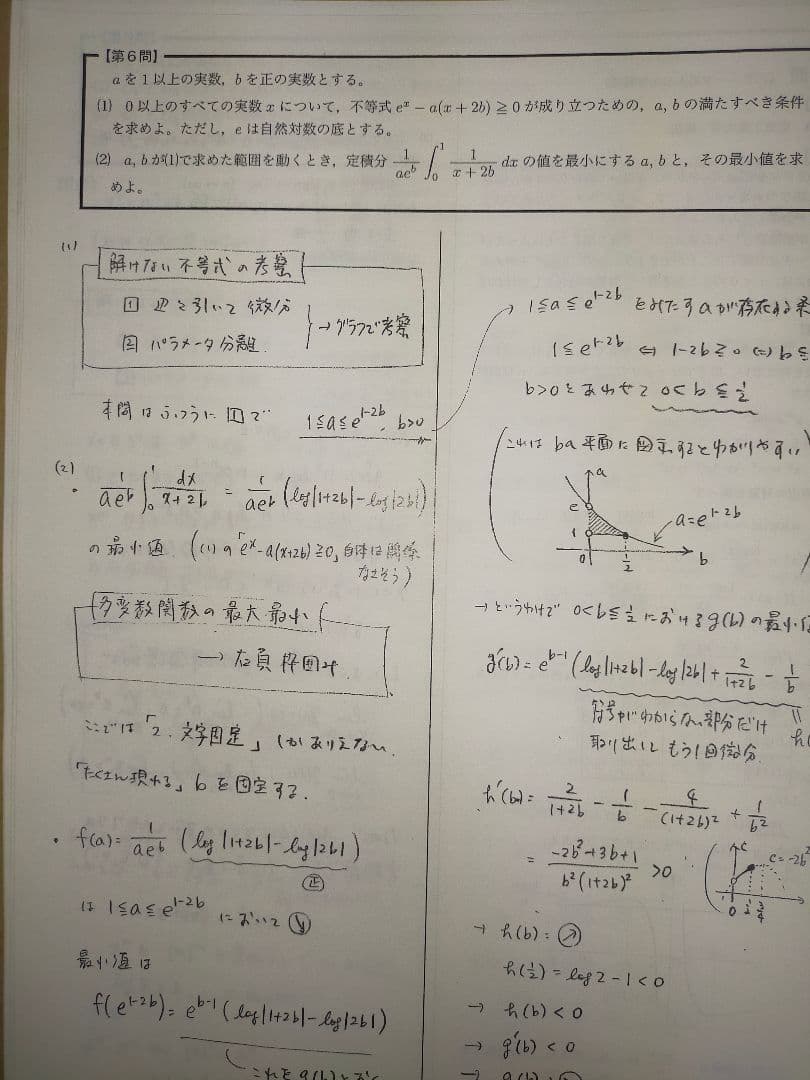 【第6問】
aを1以上の実数，bを正の実数とする。
(1) 0以上のすべての実数xについて，不等式 eˣ − a(x + 2b) ≧ 0 が成り立つための，a, b の満たすべき条件
を求めよ。ただし，e は自然対数の底とする。
(2) a, b が(1)で求めた範囲を動くとき，定積分 1/(ae^b) ∫₀¹ 1/(x + 2b) dx の値を最小にする a, b と，その最小値を求
めよ。
(1)
解けない不等式の考察
1 辺々引いて微分
2 パラメータ分離
→グラフで考察
本問はふつうに 1 で
1≦a≦e^(1-2b), b>0
(2)
・ 1/(ae^b) ∫₀¹ dx/(x+2b) = 1/(ae^b) (log|1+2b|−log|2b|)
の最小値 ((1)の「eˣ−a(x+2b)≧0」自体は関係
なさそう)
多変数関数の最大・最小
→ 右頁枠囲み
ここでは「2. 文字固定」しかありえない.
「たくさん現れる」bを固定する.
・ f(a)= 1/(ae^b) (log|1+2b|−log|2b|)
正
は 1≦a≦e^(1-2b) において ↘
最小値は
f(e^(1-2b))= e^(b-1) (log|1+2b|−log|2b|)
これを g(b) とおく
→ 1≦a≦e^(1-2b) をみたすaが存在する
1≦e^(1-2b) ⇔ 1-2b≧0 ⇔ b≦
b>0とあわせて 0<b≦1/2
(これは ba平面に図示するとわかりやすい
a
e
1
0
1/2
b
a=e^(1-2b)
→ というわけで 0<b≦1/2 における g(b) の最小値
g'(b)= e^(b-1) (log|1+2b|−log|2b|+ 2/(1+2b) − 1/b
符号がわからない部分だけ
取り出して もう1回微分.
h'(b)= 2/(1+2b) − 1/b − 4/(1+2b)² + 1/b²
= (-2b²+3b+1)/(b²(1+2b)²) >0
c
c=-2b²
0 1/2 3/4
→ h(b): ↗
h(1/2)=log2−1<0
→ h(b)<0
→ g'(b)<0